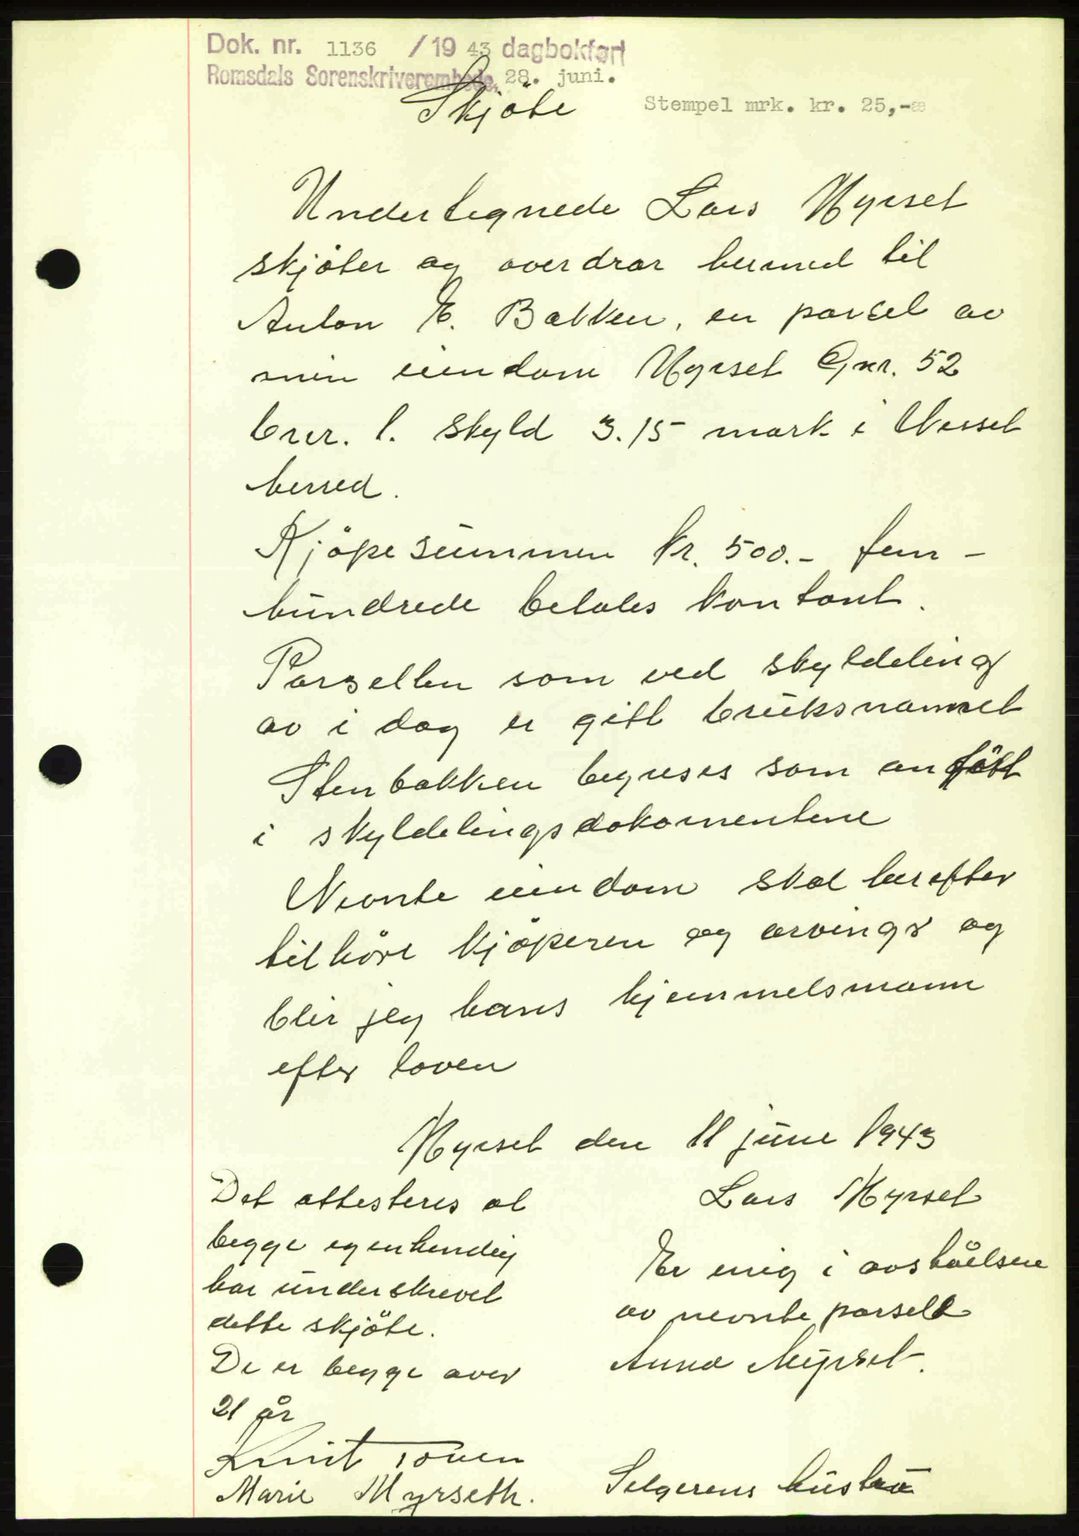 Dok. nr. 1136 / 19 43 dagbokført
Romsdals Sorenskriverembede, 28. juni.
Skjöte
Stempel mrk. kr. 25,-æ
Undertegnede Lars Myrset
skjöter og overdrar hermed til
Anton E. Bakken, en parsel av
min eiendom Myrset Gnr. 52
bnr. 1. skyld 3.15 mark i Vesset
herred.
Kjöpesummen kr. 500.- fem-
hundrede betales kontant.
Parsellen som ved skyldeling
av i dag er gitt bruksnamnet
Stenbakken begreses som anfört
i skyldelingsdokomentene
Nevnte eiendom skal herefter
tilhöre kjöperen og arvinger og
blir jeg hans hjemmelsmann
efter loven
Myrset den 11 june 1943
Lars Myrset
Det attesteres at
begge egenhendig
har underskrevet
dette skjöte.
De er begge over
21 år
Knut Toven
Marie Myrseth.
Er enig i avståelsen
av nevnte parsell
Anna Myrset.
Selgerens hustru